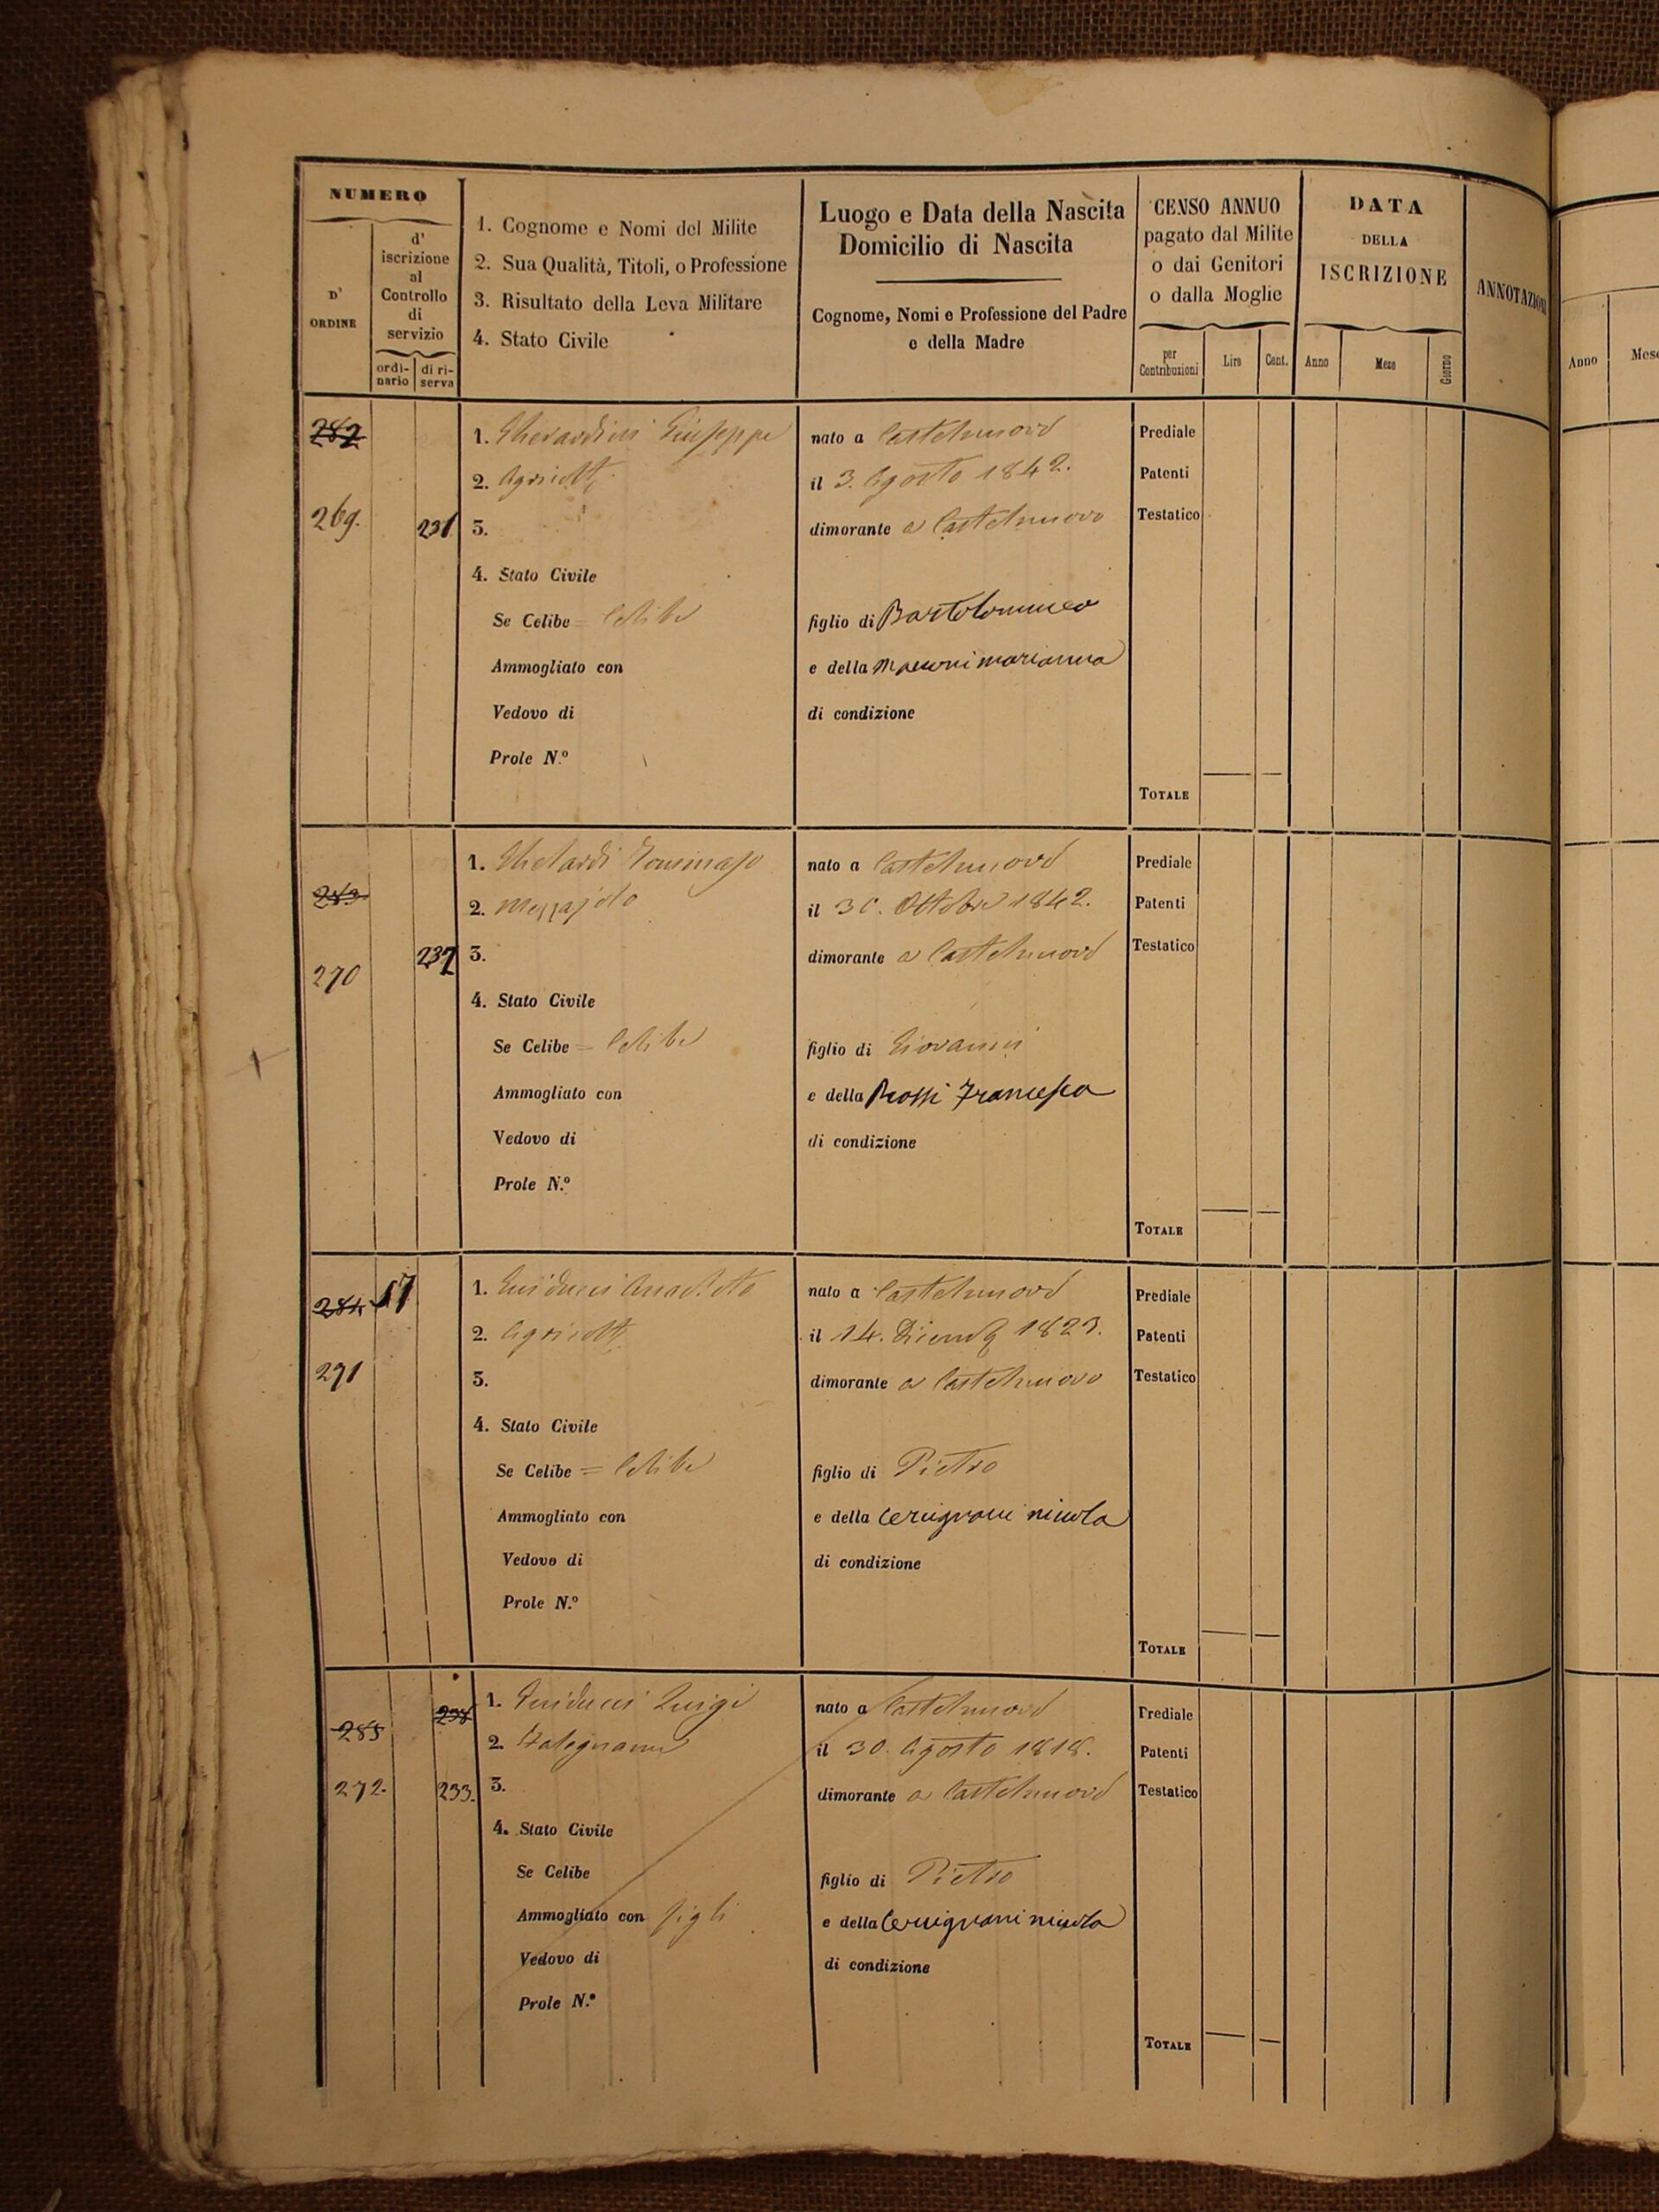 NUMERO
D'
ORDINE
d'
iscrizione
al
Controllo
di
servizio
ordi-
nario
di ri-
serva
1. Cognome e Nomi del Milite
2. Sua Qualità, Titoli, o Professione
3. Risultato della Leva Militare
4. Stato Civile
Luogo e Data della Nascita
Domicilio di Nascita
Cognome, Nomi e Professione del Padre
e della Madre
CENSO ANNUO
pagato dal Milite
o dai Genitori
o dalla Moglie
per
Contribuzioni
Lire
Cent.
DATA
DELLA
ISCRIZIONE
Anno
Mese
Giorno
ANNOTAZIONI
Anno
Mese
282
269.
231
1. Gherardini Giuseppe
2. Agricolt.
3.
4. Stato Civile
Se Celibe = Celibe
Ammogliato con
Vedovo di
Prole N.º
nato a Castelnuovo
il 3. Agosto 1842.
dimorante a Castelnuovo
figlio di Bartolommeo
e della marianna
di condizione
Prediale
Patenti
Testatico
TOTALE
283
270
232
1. Ghelardi Tommaso
2.
3.
4. Stato Civile
Se Celibe = Celibe
Ammogliato con
Vedovo di
Prole N.º
nato a Castelnuovo
il 30. Ottobre 1842.
dimorante a Castelnuovo
figlio di Giovanni
e della Rossi Francesca
di condizione
Prediale
Patenti
Testatico
TOTALE
284
17
271
1. Guiducci Anacleto
2. Agricolt.
3.
4. Stato Civile
Se Celibe = Celibe
Ammogliato con
Vedovo di
Prole N.º
nato a Castelnuovo
il 14. 1823.
dimorante a Castelnuovo
figlio di Pietro
e della Cerugnani nicola
di condizione
Prediale
Patenti
Testatico
TOTALE
285
272.
238
233.
1. Guiducci Luigi
2. Falegname
3.
4. Stato Civile
Se Celibe
Ammogliato con figli
Vedovo di
Prole N.º
nato a Castelnuovo
il 30. Agosto 1818.
dimorante a Castelnuovo
figlio di Pietro
e della Cerugnani nicola
di condizione
Prediale
Patenti
Testatico
TOTALE